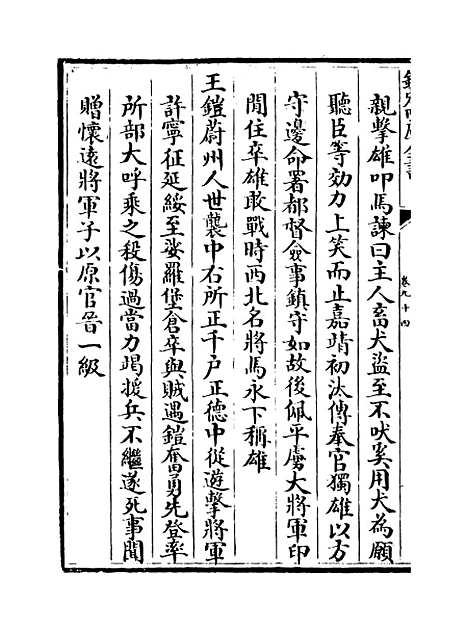 親擊雄叩馬諫曰主人畜犬盜至不吠奚用犬為願
聽臣等効力上笑而止嘉靖初汰傳奉官獨雄以方
守邊命署都督僉事鎮守如故後佩平虜大將軍印
閒住卒雄敢戰時西北名將馬永下稱雄
王鎧蔚州人世襲中右所正千户正德中從遊擊將軍
許寧征延綏至娑羅堡倉卒與賊遇鎧奮勇先登率
所部大呼乘之殺傷過當力竭援兵不繼遂死事聞
贈懷遠將軍子以原官晉一級
卷九十四